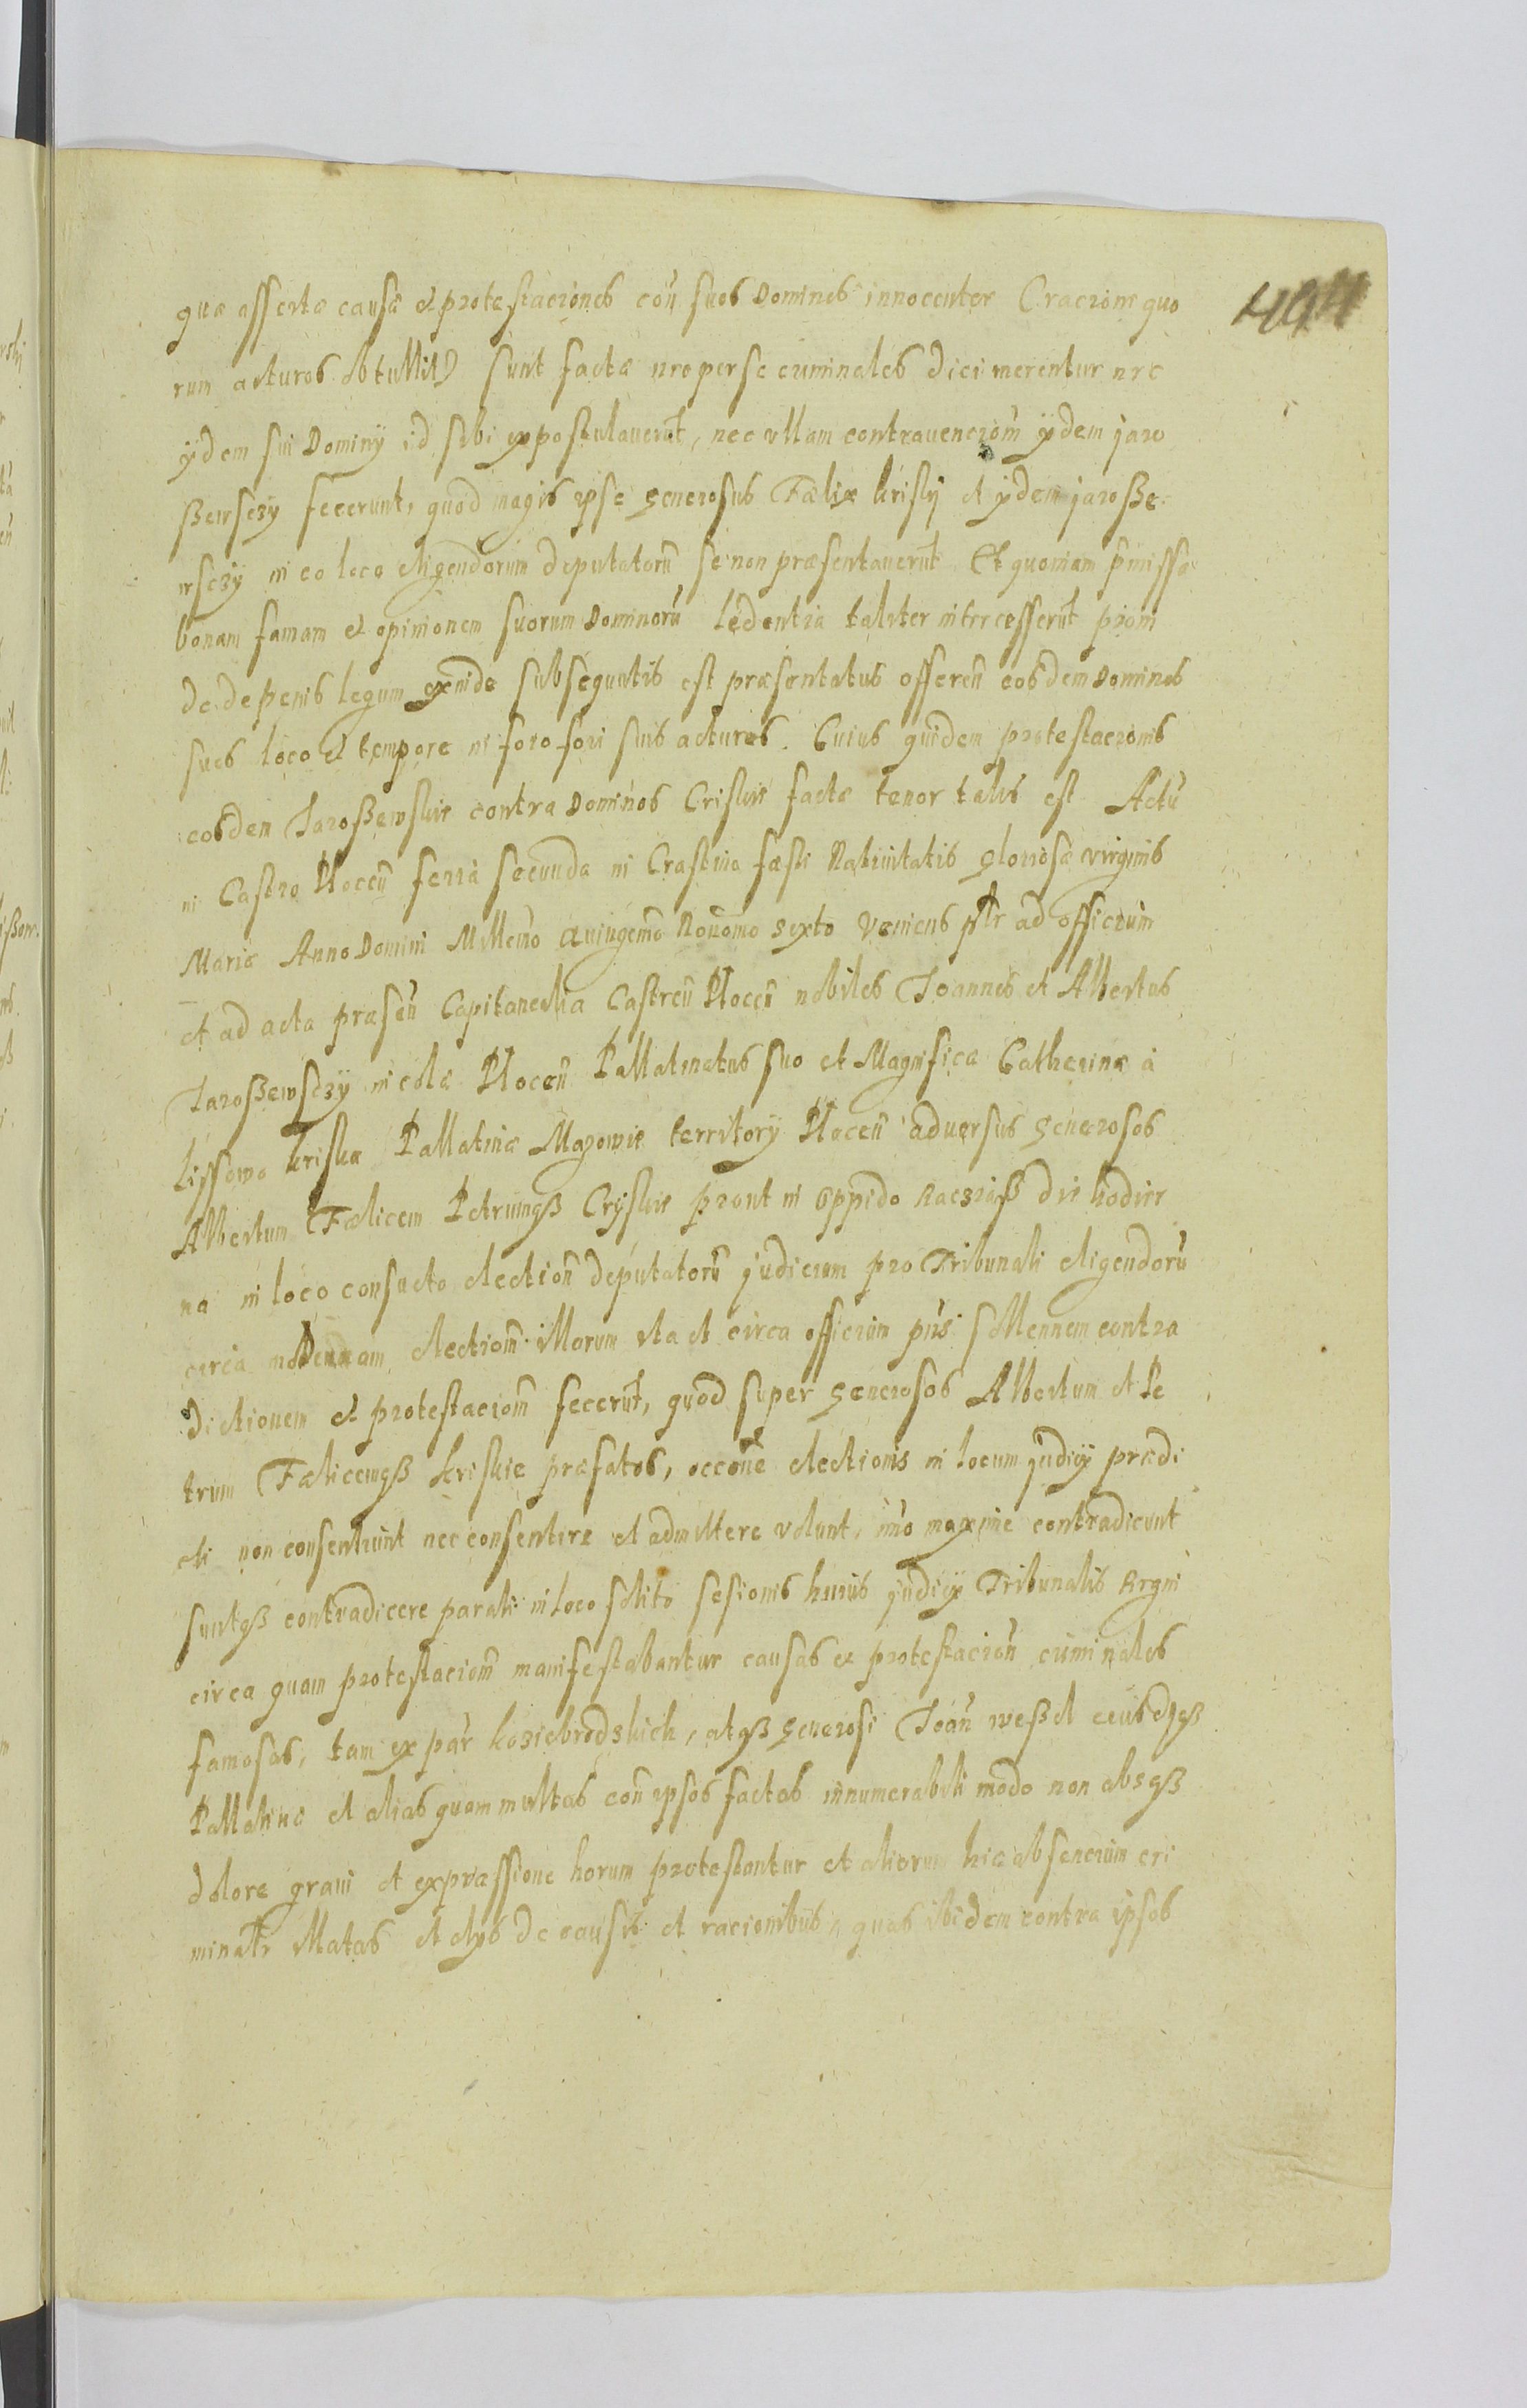 quæ assertæ causæ et protestaciones con̄ suos Dominos innocenter (racione quo
rum acturos obtullit) sunt factæ neo per se criminales dici merentur nec
ÿdem sui Dominÿ id sibi expostulauerūt, nec vllam contrauencion̄m ÿdem jaro
ßewsczÿ fecerunt, quod magis ipse Generosus Fælix kriskÿ et ÿdem jaroße
wsczÿ in eo loco eligendorum deputatorū se non præsentauerūt Et quoniam pmissa
bonam famam et opinionem suorum Dominorū lędentia taliter intercesserūt proin
de de pęnis legum exinde subsequutis est præsentatus offeren̄ eosdem Dominos
suos loco et tempore in foro fori suis acturos. Cuius quidem protestacionis
eosdem Jaroßewskie contra Dominos Criskie factæ tenor talis est Actū
in Castro Plocen̄ feria secunda in Crastino fæsti Natiuitatis gloriosæ virginis
Mariæ Anno Domini Millemo Quingemo Nonomo sexto Veniens pnlr ad officium
et ad acta præsen̄ Capitanealia Castren̄ Plocen̄ nobiles Joannes et Albertus
Jaroßewsczÿ incolæ Plocen̄ Pallatinatus suo et Magnificæ Catherinæ a
Lissowo kriskæ Pallatinæ Mazowię territorÿ Plocen̄ aduersus Generosos
Albertum Fælicem Petrumqß Crÿskie prout in oppido Racziąß die hodier
na in loco consueto election̄ deputatorū judicum pro Tribunali eligendorū
circa election̄m illorum ita et circa officium pn̄s sollennem contra
dictionem et protestacion̄m fecerūt, quod super Generosos Albertum et Pe
trum Fælicemqß kriskie præfatos, occon̄e electionis in locum judicÿ prædi
cti non consentiunt nec consentire et admittere volunt, imo maxime contradicunt
suntqß contradicere parati in loco solito sesionis huius judicÿ Tribunalis Regni
circa quam protestacion̄m manifestabantur causas et protestacion̄ criminales
famosas, tam ex par̄ kosiebrodzkich, atqß Generosi Joan̄ weßel
Pallatinæ et alias quam multas con̄ ipsos factas innumerabili modo non absqß
dolore graui et expræssione horum protestantur et aliorum hic absencium cri
minalr illatas et alÿs de causis et racionibus quas ibidem contra ipsos